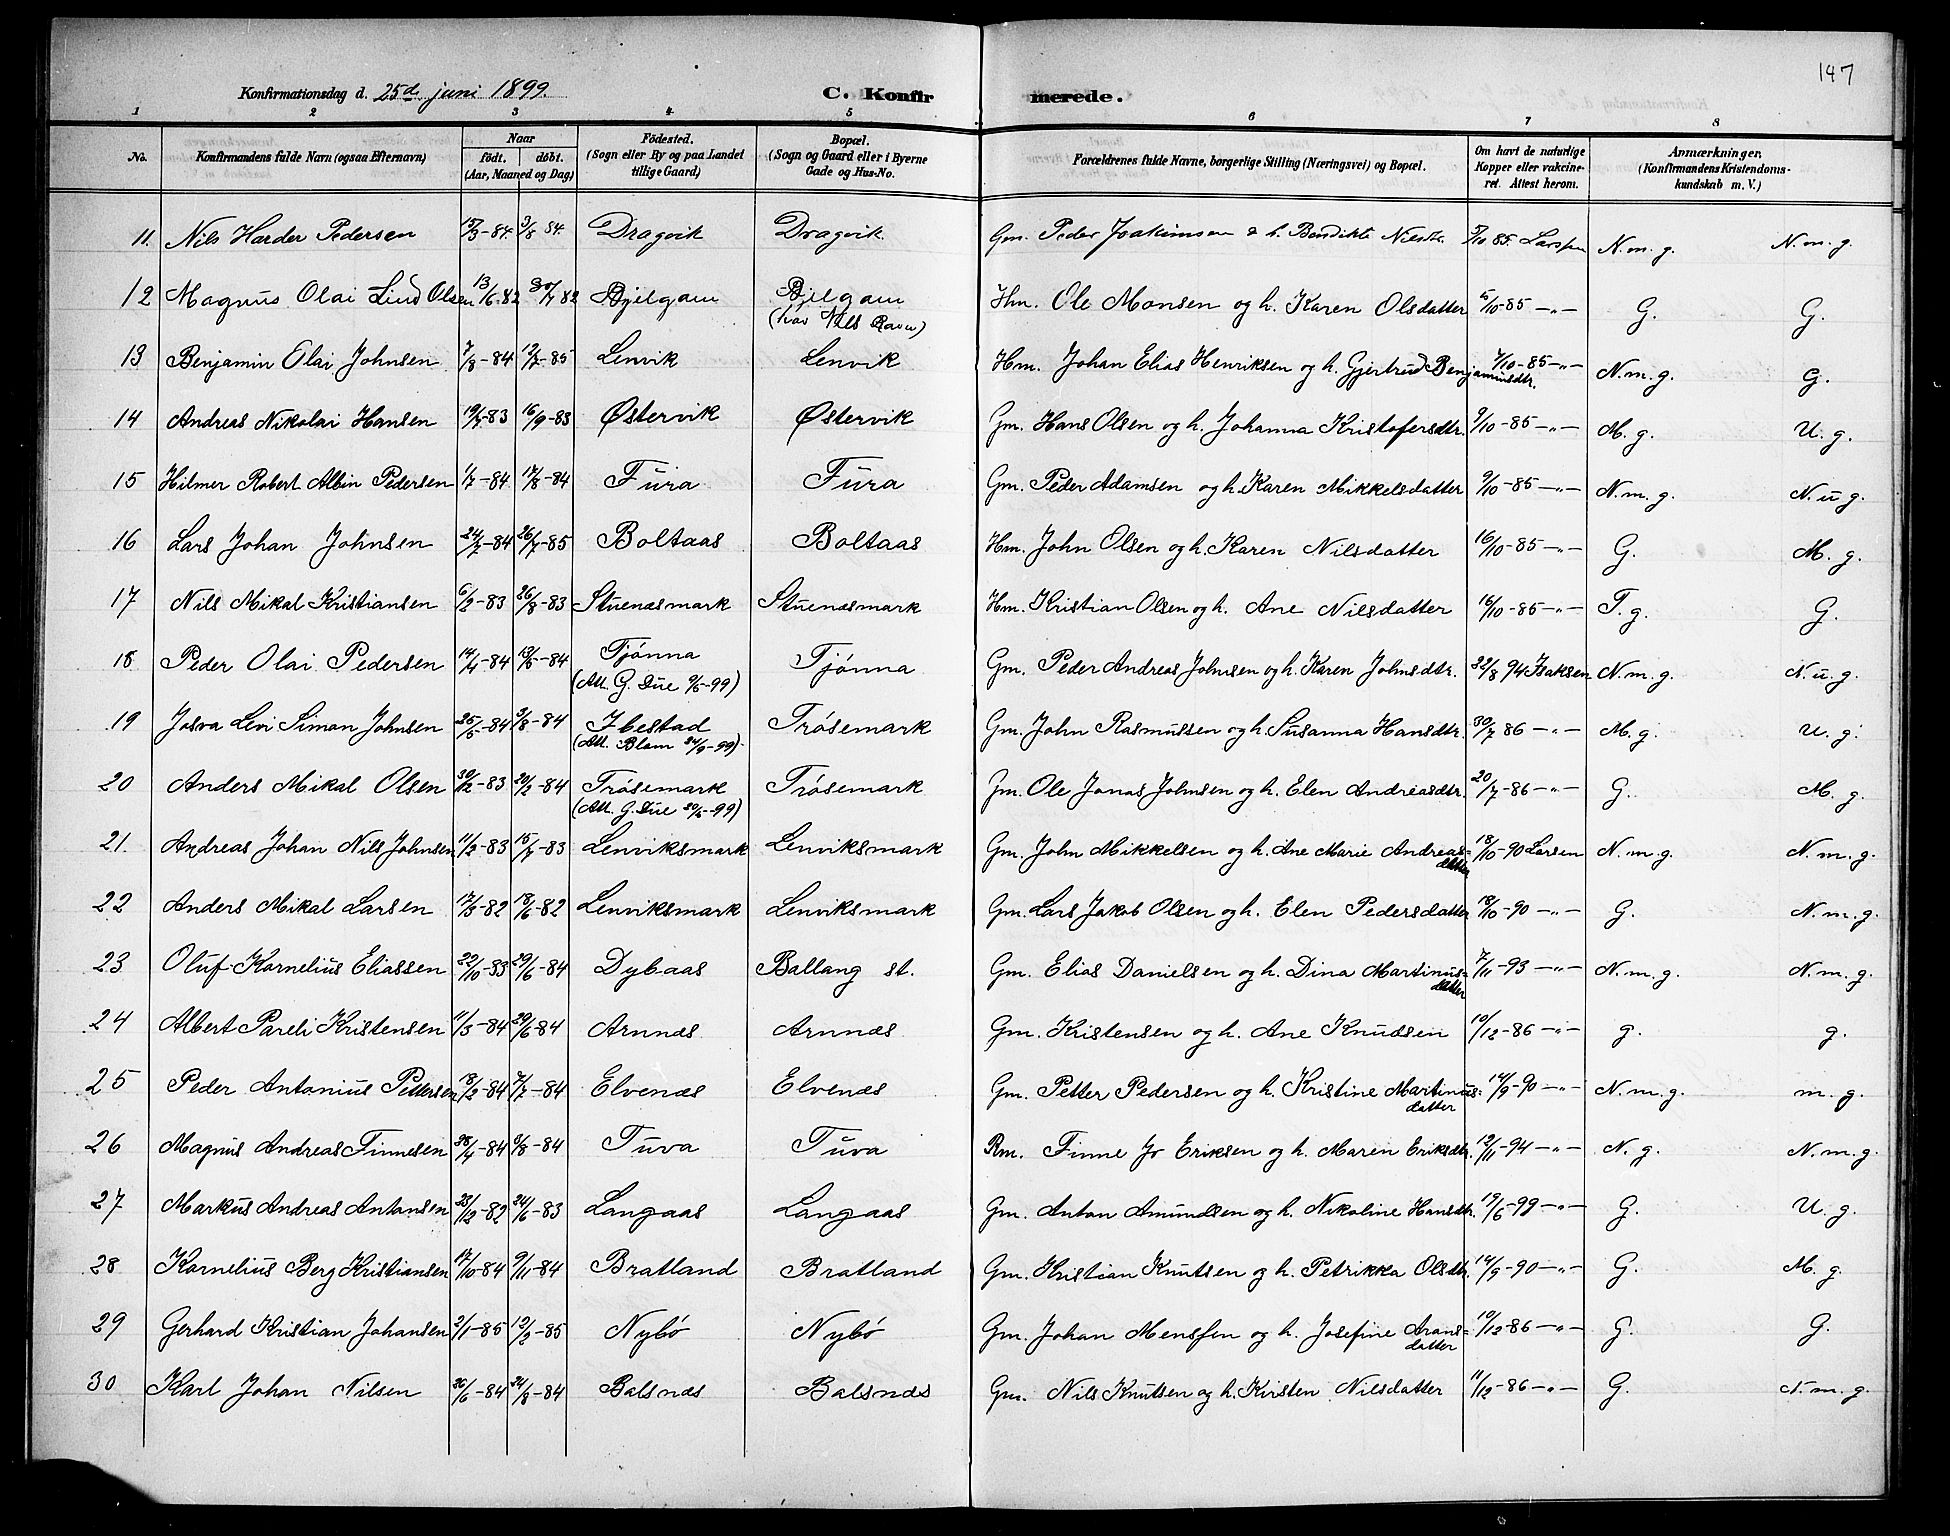 147
Konfirmationsdag d. 25d juni 1899. C. Konfirmerede.
1 2 3 4 5 6 7 8
No. Konfirmandens fulde Navn (ogsaa Efternavn) Naar födt. döbt. (Aar, Maaned og Dag) Födested. (Sogn eller By og paa Landet tillige Gaard) Bopæl. (Sogn og Gaard eller i Byerne Gade og Hus-No. Forældrenes fulde Navne, borgerlige Stilling (Næringsvei) og Bopæl. Om havt de naturlige Kopper eller vakcineret. Attest herom. Anmærkninger. (Konfirmandens Kristendomskundskab m. V.)
11. Nils Harder Pedersen 3/8 84. Dragvik Dragvik Gm. Peder Joakimsen & h. Bendikte N. m. g. N. m. g.
12 Magnus Olai Lind Olsen 13/6-82 30/7 82 Bjelgam Bjelgam (hos Nils Ravn) Hm. Ole Monsen og h. Karen Olsdatter 5/10-85 -"- G. G.
13 Benjamin Olai Johnsen 7/8-84 12/7-85 Lenvik Lenvik Hm. Johan Elias Henriksen og h. Gjertrud Benjaminsdtr. 7/10-85-"- N. m. g. G.
14 Andreas Nikolai Hansen 19/7-83 16/9-83 Østervik Østervik Gm. Hans Olsen og h. Johanna Kristofersdtr. 9/10-85-"- M. g. U. g.
15 Hilmer Robert Albin Pedersen 1/7-84 17/8-84 Fura Fura Gm. Peder Adamsen og h. Karen Mikkelsdatter 9/10-85-"- N. m. g. N. u g.
16 Lars Johan Johnsen 24/7-84 26/7-85 Boltaas Boltaas Hm. John Olsen og h. Karen Nilsdatter 16/10-85-"- G. M. g.
17 Nils Mikal Kristiansen 6/2-83 26/8-83 Stuenæsmark Stuenæsmark Hm. Kristian Olsen og h. Ane Nilsdatter 16/10-85-"- T. g. G.
18 Peder Olai Pedersen 14/4-84 Tjønna (Att. G. Due 9/5-99) Tjønna Gm. Peder Andreas Johnsen og h. Karen Johnsdtr. 22/8 94 Isaksen N. m. g. N. u. g.
19 Josva Levi Simon Johnsen 25/5-84 3/8-84 Ibestad (Att. Blom 24/9-99) Trøsemark Gm. John Rasmussen og h. Susanna Hansdtr. 30/7 86 -"- M. g. U. g.
20 Anders Mikal Olsen 30/12-83 20/2-84 Trøsemark (Att. G. Due 20/5-99) Trøsemark Gm. Ole Jonas Johnsen og h. Elen Andreasdtr. 20/7-86-"- G. M. g.
21. Andreas Johan Nils Johnsen 11/2-83 15/7-83 Lenviksmark Lenviksmark Gm. John Mikkelsen og h. Ane Marie Andreasdatter 18/10-90 Larsen N. m. g. N. m. g.
22 Anders Mikal Larsen 17/5-82 18/6-82 Lenviksmark Lenviksmark Gm. Lars Jakob Olsen og h. Elen Pedersdatter 18/10-90 -"- G. N. m. g.
23 Oluf Kornelius Eliassen 22/10-83 29/6-84 Dybaas Ballang st. Gm. Elias Danielsen og h. Dina Martinusdatter 7/11-93 -"- N. m. g. N. m. g.
24 Albert Pareli Kristensen 11/3-84 29/6 84 Arnnæs Arnnæs Gm. Kristensen og h. Ane Knudsen 10/12-86-"- g. g.
25 Peder Antonius Pettersen 18/2-84 7/7-84 Elvenæs Elvenæs Gm. Petter Pedersen og h. Kristine Martinusdatter 14/9-90-"- N. m. g. m. g.
26 Magnus Andreas Finnesen 28/4-84 Tuva Tuva Rm. Finne Jo Eriksen og h. Maren Eriksdtr. 12/11-94 -"- N. g. N. m. g.
27 Markus Andreas Antonsen 23/12-82 24/6-83 Langaas Langaas Gm. Anton Amundsen og h. Nikoline Hansdtr. 19/6-99 -"- G. U. g.
28 Kornelius Berg Kristiansen 17/10-84 9/11-84 Bratland Bratland Gm. Kristian Knutsen og h. Petrikka Olsdtr. 14/9-90-"- G. M. g.
29 Gerhard Kristian Johansen 2/1-85 12/2-85 Nybø Nybø Gm. Johan Mensfen og h. Josefine Aronsdatter 10/12-86-"- G. G.
30 Karl Johan Nilsen 26/6-84 24/8-84 Balsnæs Balsnæs Gm. Nils Knutsen og h. Kirsten Nilsdatter 11/12-86-"- G. N. m. g.